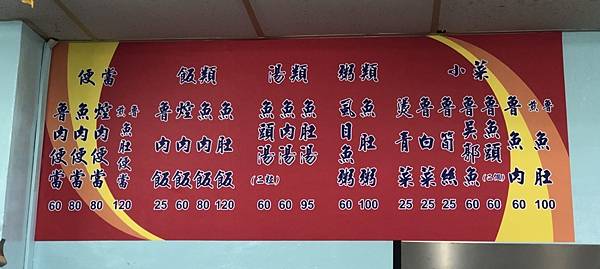 便當
魯肉便當 60
魚肉便當 80
焢肉便當 80
煎魯魚肚便當 120
飯類
魯肉飯 25
焢肉飯 60
魚肉飯 80
魚肚飯 120
湯類
魚頭湯(二粒) 60
魚肉湯 60
魚肚湯 95
粥類
虱目魚粥 60
魚肚粥 100
小菜
燙青菜 25
魯白菜 25
魯筍絲 25
魯吳郭魚 60
魯魚頭(二個) 60
魯魚肉 60
煎魯魚肚 100